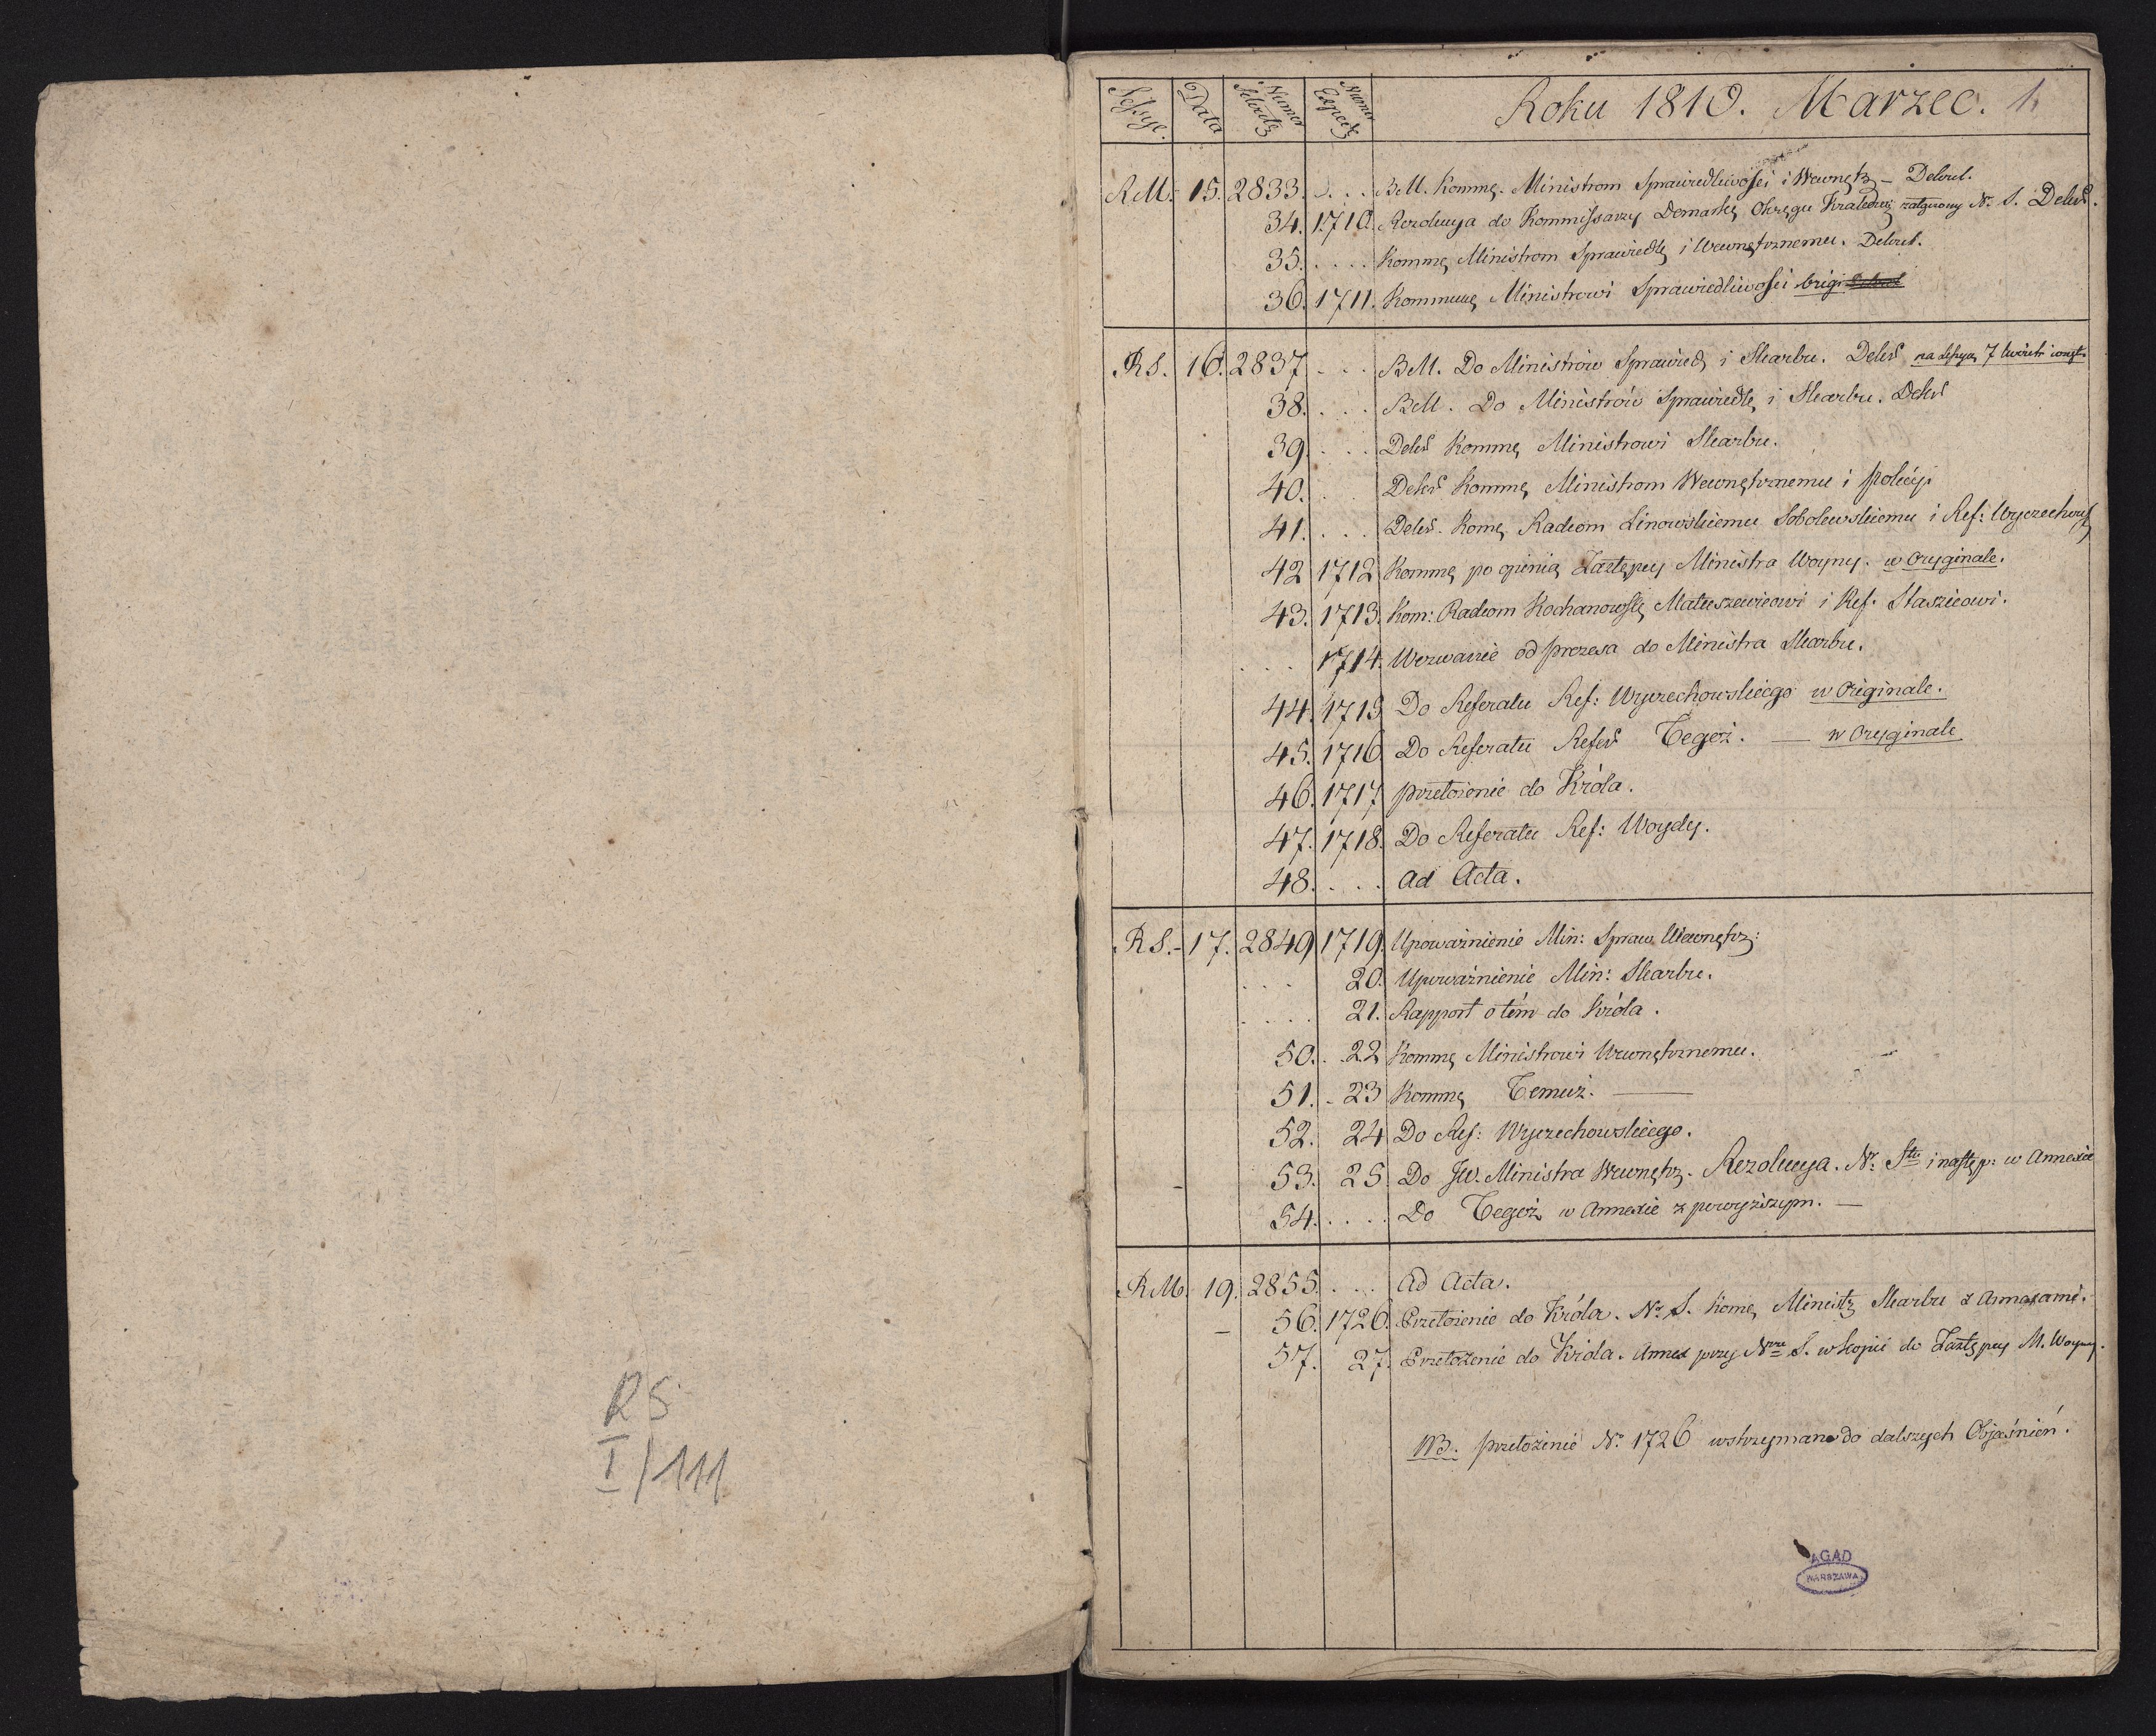 RS
I/111
Sessye. Data Numer Expedy Roku 1810. Marzec. 1
RM. 15. 2833. . . . BM. Kommę. Ministrom Sprawiedliwości i Wewnętrz – Dekret.
34. 1710. Rezolucya do Kommissarzy Okręgu załączony N. S. Dekret.
35. . . . . Kommę Ministrom Sprawiedlę i Wewnętrznemu. Dekret.
36. 1711. Ministrowi Sprawiedliwości
RS. 16. 2837 . . . BM. Do Ministrów Sprawied. i Skarbu. Dekret na 7
38. . . . BM. Do Ministrów Sprawiedle, i Skarbu. Dekret
39. . . . Dekret Kommę Ministrowi Skarbu.
40. . . Dekret Kommę Ministrom Wewnętrznemu i Policyi
41. . . . Dekret. Komę Radcom Linowskiemu Sobolewskiemu i Ref: Wyczechows
42 1712 Kommę po opinią Zastępcy Ministra Woyny. w Oryginale.
43. 1713. Kom: Radcom Kochanowsk, Matuszewicowi i Ref. Staszicowi.
. . . 1714. Wezwanie od prezesa do Ministra Skarbu.
44. 1715 Do Referatu Ref: Wyczechowskiego w Originale.
45. 1716 Do Referatu Tegoż. — w Oryginale
46. 1717 przełożenie do Króla.
47. 1718. Do Referatu Ref: Woydy.
48. . . . ad Acta.
RS.- 17. 2849 1719. Upoważnienie Min: Spraw Wewnętrz:
. . . 20. Upoważnienie Min: Skarbu.
. . . . 21. Rapport o tém do Króla.
50. . 22 Kommę Ministrowi Wewnętrznemu.
51. - 23 Kommę Temuż. —
52. 24 Do Ref: Wyczechowskiego.
53. 25. Do JW. Ministra Wewnętrz. Rezolucya. Nr. i następ: w Annexie
54. . . . . Do Tegoż w Annexie z powyższym. —
RM. 19. 2855. . . . ad Acta.
56. 1726. Przełożenie do Króla. Nr. S. Komę Ministr Skarbu z Annexami.
57. 27. Przełożenie do Króla. Annex przy S. w kopii do Zastępcy M. Woyny.
NB. przełożenie No 1726 wstrzymane do dalszych Objaśnień.
AGAD
WARSZAWA